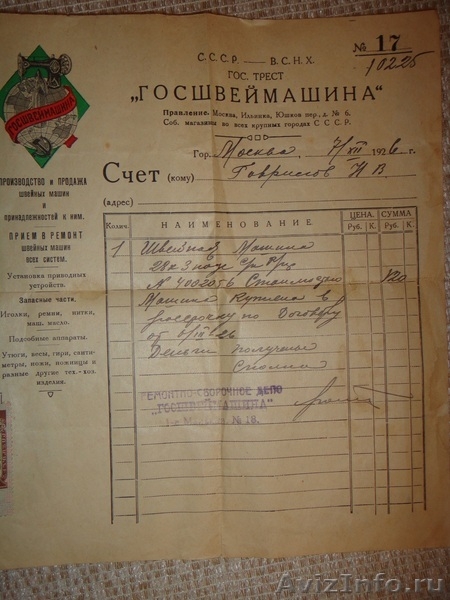 № 17
10225
С.С.С.Р. — В.С.Н.Х.
ГОС. ТРЕСТ
„ГОСШВЕЙМАШИНА“
Правление: Москва, Ильинка, Юшков пер., д. № 6.
Соб. магазины во всех крупных городах С.С.С.Р.
ГОСШВЕЙМАШИНА
Гор. Москва 7/VII 1926 г.
Счет (кому) Гаврилов И В
(адрес)
ПРОИЗВОДСТВО и ПРОДАЖА
швейных машин
и
принадлежностей к ним.
ПРИЕМ В РЕМОНТ
швейных машин
всех систем.
Установка приводных
устройств.
Запасные части.
Иголки, ремни, нитки,
маш. масло.
Подсобные аппараты.
Утюги, весы, гири, санти-
метры, ножи, ножницы и
разные другие тех.-хоз.
изделия.
Колич. НАИМЕНОВАНИЕ ЦЕНА. СУММА
Руб. К. Руб. К.
1 Швейная Машина
№ 400 Стоимостью 120
Машина куплена в
рассрочку по Договору
от
Деньги получены
РЕМОНТНО-СБОРОЧНОЕ ДЕПО
„ГОСШВЕЙМАШИНА“
№ 18.
AvizInfo.ru